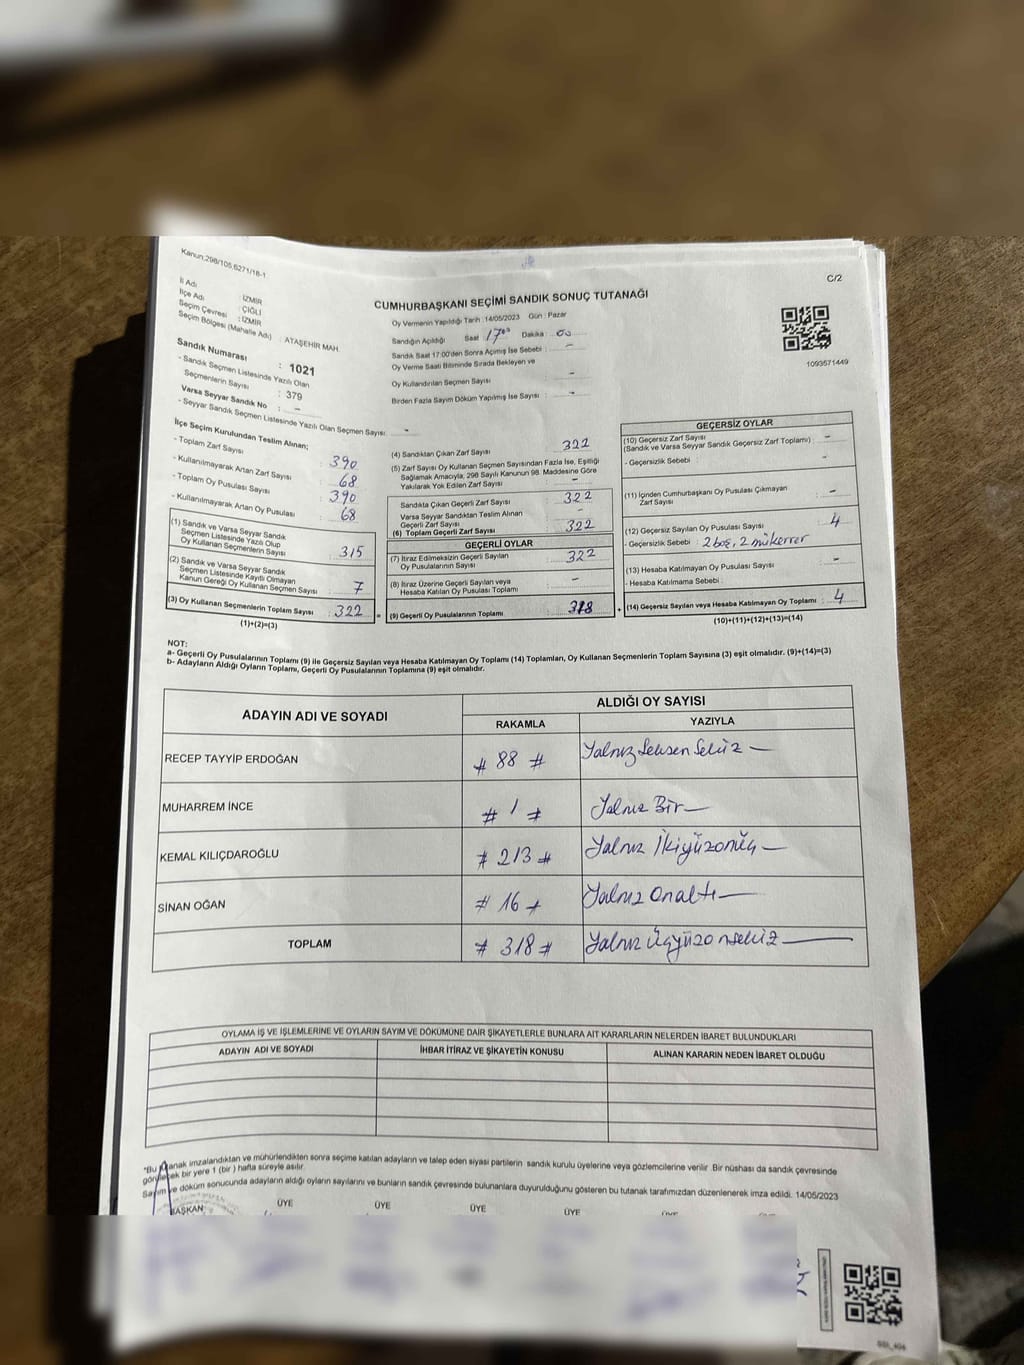 Kanun:298/105,6271/18-1
C/2
CUMHURBAŞKANI SEÇİMİ SANDIK SONUÇ TUTANAĞI
İl Adı : İZMİR
İlçe Adı : ÇİĞLİ
Seçim Çevresi : İZMİR
Seçim Bölgesi (Mahalle Adı) : ATAŞEHİR MAH.
Sandık Numarası : 1021
- Sandık Seçmen Listesinde Yazılı Olan
Seçmenlerin Sayısı : 379
Varsa Seyyar Sandık No : -
- Seyyar Sandık Seçmen Listesinde Yazılı Olan Seçmen Sayısı : -
Oy Vermenin Yapıldığı Tarih :14/05/2023 Gün : Pazar
Sandığın Açıldığı Saat : 17⁰⁰ Dakika : 00
Sandık Saat 17:00'den Sonra Açımış İse Sebebi : -
Oy Verme Saati Bitiminde Sırada Bekleyen ve
Oy Kullandırılan Seçmen Sayısı : -
Birden Fazla Sayım Döküm Yapılmış İse Sayısı : -
1093571449
İlçe Seçim Kurulundan Teslim Alınan;
- Toplam Zarf Sayısı : 390
- Kullanılmayarak Artan Zarf Sayısı : 68
- Toplam Oy Pusulası Sayısı : 390
- Kullanılmayarak Artan Oy Pusulası : 68
(1) Sandık ve Varsa Seyyar Sandık
Seçmen Listesinde Yazılı Olup
Oy Kullanan Seçmenlerin Sayısı : 315
(2) Sandık ve Varsa Seyyar Sandık
Seçmen Listesinde Kayıtlı Olmayan
Kanun Gereği Oy Kullanan Seçmen Sayısı : 7
(3) Oy Kullanan Seçmenlerin Toplam Sayısı : 322
(1)+(2)=(3)
(4) Sandıktan Çıkan Zarf Sayısı : 322
(5) Zarf Sayısı Oy Kullanan Seçmen Sayısından Fazla İse, Eşitliği
Sağlamak Amacıyla, 298 Sayılı Kanunun 98. Maddesine Göre
Yakılarak Yok Edilen Zarf Sayısı : -
Sandıkta Çıkan Geçerli Zarf Sayısı : 322
Varsa Seyyar Sandıktan Teslim Alınan
Geçerli Zarf Sayısı : -
(6) Toplam Geçerli Zarf Sayısı : 322
GEÇERLİ OYLAR
(7) İtiraz Edilmeksizin Geçerli Sayılan
Oy Pusulalarının Sayısı : 322
(8) İtiraz Üzerine Geçerli Sayılan veya
Hesaba Katılan Oy Pusulası Toplamı : -
= (9) Geçerli Oy Pusulalarının Toplamı : 318 +
GEÇERSİZ OYLAR
(10) Geçersiz Zarf Sayısı
(Sandık ve Varsa Seyyar Sandık Geçersiz Zarf Toplamı) : -
- Geçersizlik Sebebi : -
(11) İçinden Cumhurbaşkanı Oy Pusulası Çıkmayan
Zarf Sayısı : -
(12) Geçersiz Sayılan Oy Pusulası Sayısı : 4
- Geçersizlik Sebebi : 2 boş, 2 mükerrer
(13) Hesaba Katılmayan Oy Pusulası Sayısı : -
- Hesaba Katılmama Sebebi :
(14) Geçersiz Sayılan veya Hesaba Katılmayan Oy Toplamı : 4
(10)+(11)+(12)+(13)=(14)
NOT:
a- Geçerli Oy Pusulalarının Toplamı (9) ile Geçersiz Sayılan veya Hesaba Katılmayan Oy Toplamı (14) Toplamları, Oy Kullanan Seçmenlerin Toplam Sayısına (3) eşit olmalıdır. (9)+(14)=(3)
b- Adayların Aldığı Oyların Toplamı, Geçerli Oy Pusulalarının Toplamına (9) eşit olmalıdır.
ADAYIN ADI VE SOYADI
ALDIĞI OY SAYISI
RAKAMLA YAZIYLA
RECEP TAYYİP ERDOĞAN # 88 # Yalnız Seksen Sekiz —
MUHARREM İNCE # 1 # Yalnız Bir —
KEMAL KILIÇDAROĞLU # 213 # Yalnız İkiyüzonüç —
SİNAN OĞAN # 16 # Yalnız Onaltı —
TOPLAM # 318 # Yalnız Üçyüzonsekiz —
OYLAMA İŞ VE İŞLEMLERİNE VE OYLARIN SAYIM VE DÖKÜMÜNE DAİR ŞİKAYETLERLE BUNLARA AİT KARARLARIN NELERDEN İBARET BULUNDUKLARI
ADAYIN ADI VE SOYADI İHBAR İTİRAZ VE ŞİKAYETİN KONUSU ALINAN KARARIN NEDEN İBARET OLDUĞU
"Bu tutanak imzalandıktan ve mühürlendikten sonra seçime katılan adayların ve talep eden siyasi partilerin sandık kurulu üyelerine veya gözlemcilerine verilir. Bir nüshası da sandık çevresinde
görülecek bir yere 1 (bir) hafta süreyle asılır.
Sayım ve döküm sonucunda adayların aldığı oyların sayılarını ve bunların sandık çevresinde bulunanlara duyurulduğunu gösteren bu tutanak tarafımızdan düzenlenerek imza edildi. 14/05/2023
BAŞKAN ÜYE ÜYE ÜYE ÜYE